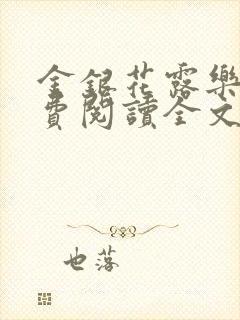 金銀花露樂
費閱讀全文
也落